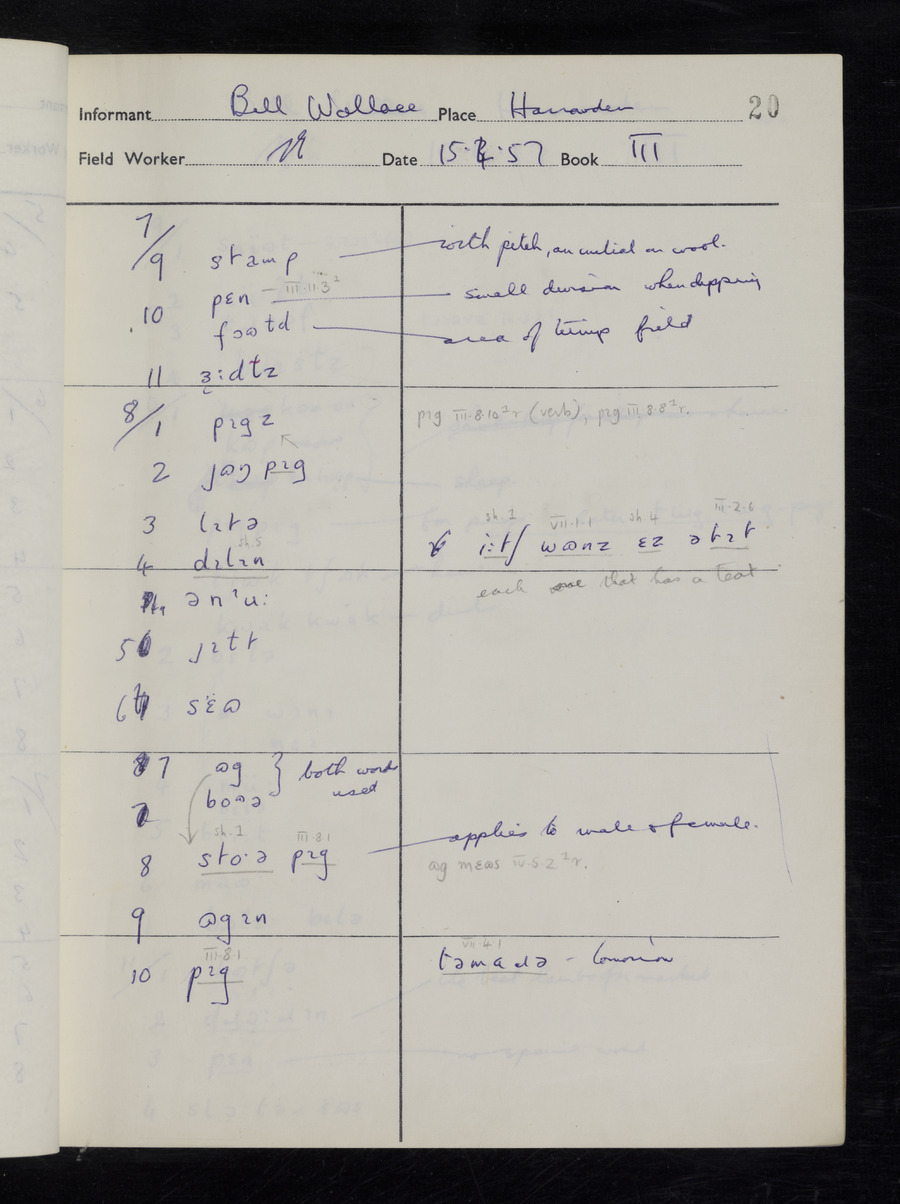 Informant Bill Wallace Place Harwarden 20
Field Worker Date 15·4·57 Book III
7/9 stamp with pitch, an initial on wool.
10 pɛn — III·11·3² small division when dipping
fɔʊtd area of turnip field
11 ɜ:dtz
8/1 pɪgz pɪg III·8·10²r (verb), pɪg III·8·8²r.
2 jɒŋ pɪg
3 lɪtə sh.1 VII·1·1 sh.4 III·2·6
sh.5 i:tʃ wɒnz ɛz ətɪt
4 dɪlɪn each one that has a teat
ən'u:
5 jɪtt
6 sɛʊ
7 ɒg } both words
bɔʊə used
sh.1 III·8·1 applies to male & female.
8 stɔ·ə pɪg ɒg means IV·5·2²r.
9 ɒgɪn
III·8·1 VII·4·1
10 pɪg təmɑdə - tomorrow